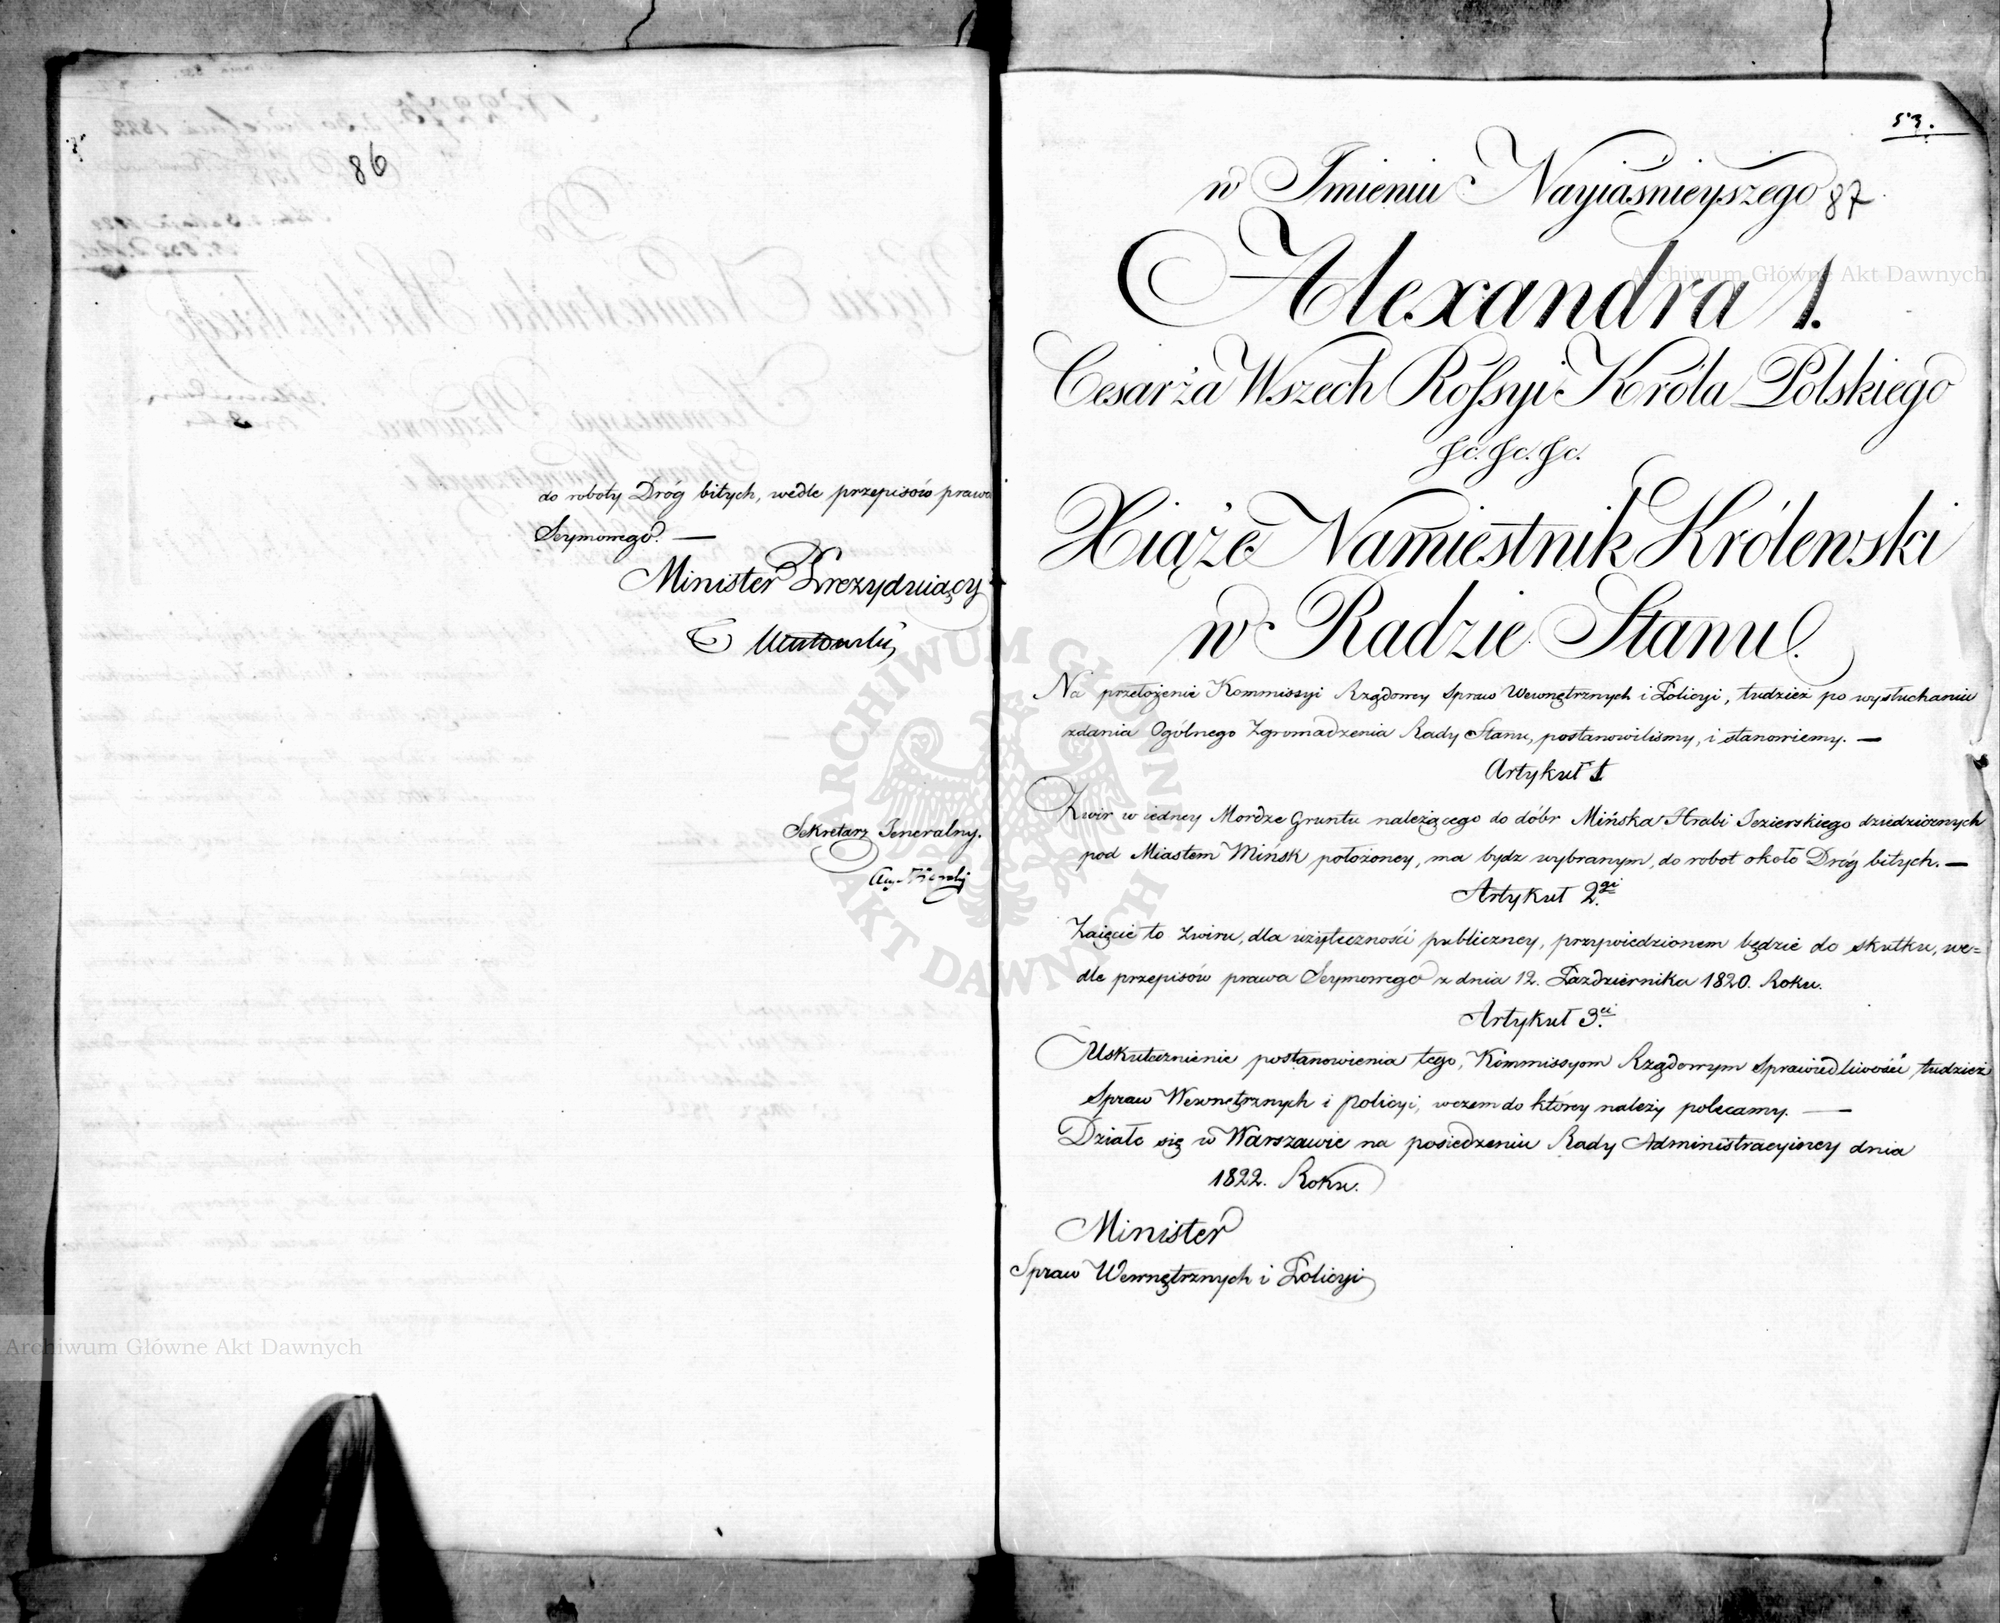 86
do roboty Dróg bitych, wedle przepisów prawa
Seymowego. —
Minister Prezyduiący
Sekretarz Jeneralny.
53.
w Imieniu Nayiaśnieyszego
87
Alexandra 1.
Cesarza Wszech Rossyi Króla Polskiego
&c. &c. &c.
Xiąże Namiestnik Królewski
w Radzie Stanu.
Na przełożenie Kommissyi Rządowey Spraw Wewnętrznych i Policyi, tudzież po wysłuchaniu
zdania Ogólnego Zgromadzenia Rady Stanu, postanowiliśmy, i stanowiemy. —
Artykuł 1.
Zwir w iedney Mordze Gruntu należącego do dóbr Mińska Hrabi Jezierskiego dziedzicznych
pod Miastem Mińsk położoney, ma bydz wybranym, do robot około Dróg bitych. —
Artykuł 2.gi
Zaięcie to zwiru, dla użyteczności publiczney, przywiedzionem będzie do skutku, we=
dle przepisów prawa Seymowego z dnia 12. Października 1820. Roku.
Artykuł 3.ci
Uskutecznienie postanowienia tego, Kommissyom Rządowym Sprawiedliwości tudzież
Spraw Wewnętrznych i Policyi, wczem do którey należy polecamy. —
Działo się w Warszawie na posiedzeniu Rady Administracyiney dnia
1822. Roku.
Minister
Spraw Wewnętrznych i Policyi
Archiwum Główne Akt Dawnych
ARCHIWUM GŁÓWNE AKT DAWNYCH
Archiwum Główne Akt Dawnych